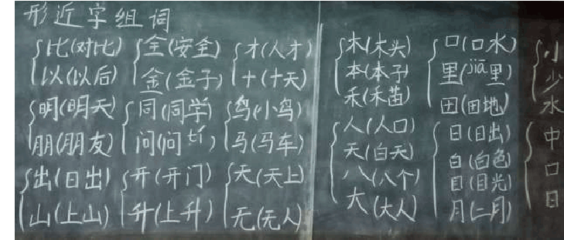 形近字组词
比(对比) 全(安全) 才(人才) 木(木头) 口(口水) 小
以(以后) 金(金子) 十(十天) 本(本子) 里(jiā里) 少
禾(禾苗) 田(田地) 水
明(明天) 同(同学) 鸟(小鸟) 人(人口) 日(日出) 中
朋(朋友) 问(问) 马(马车) 天(白天) 白(白色) 口
出(日出) 开(开门) 天(天上) 八(八个) 目(目光) 日
山(上山) 升(上升) 无(无人) 大(大人) 月(二月)